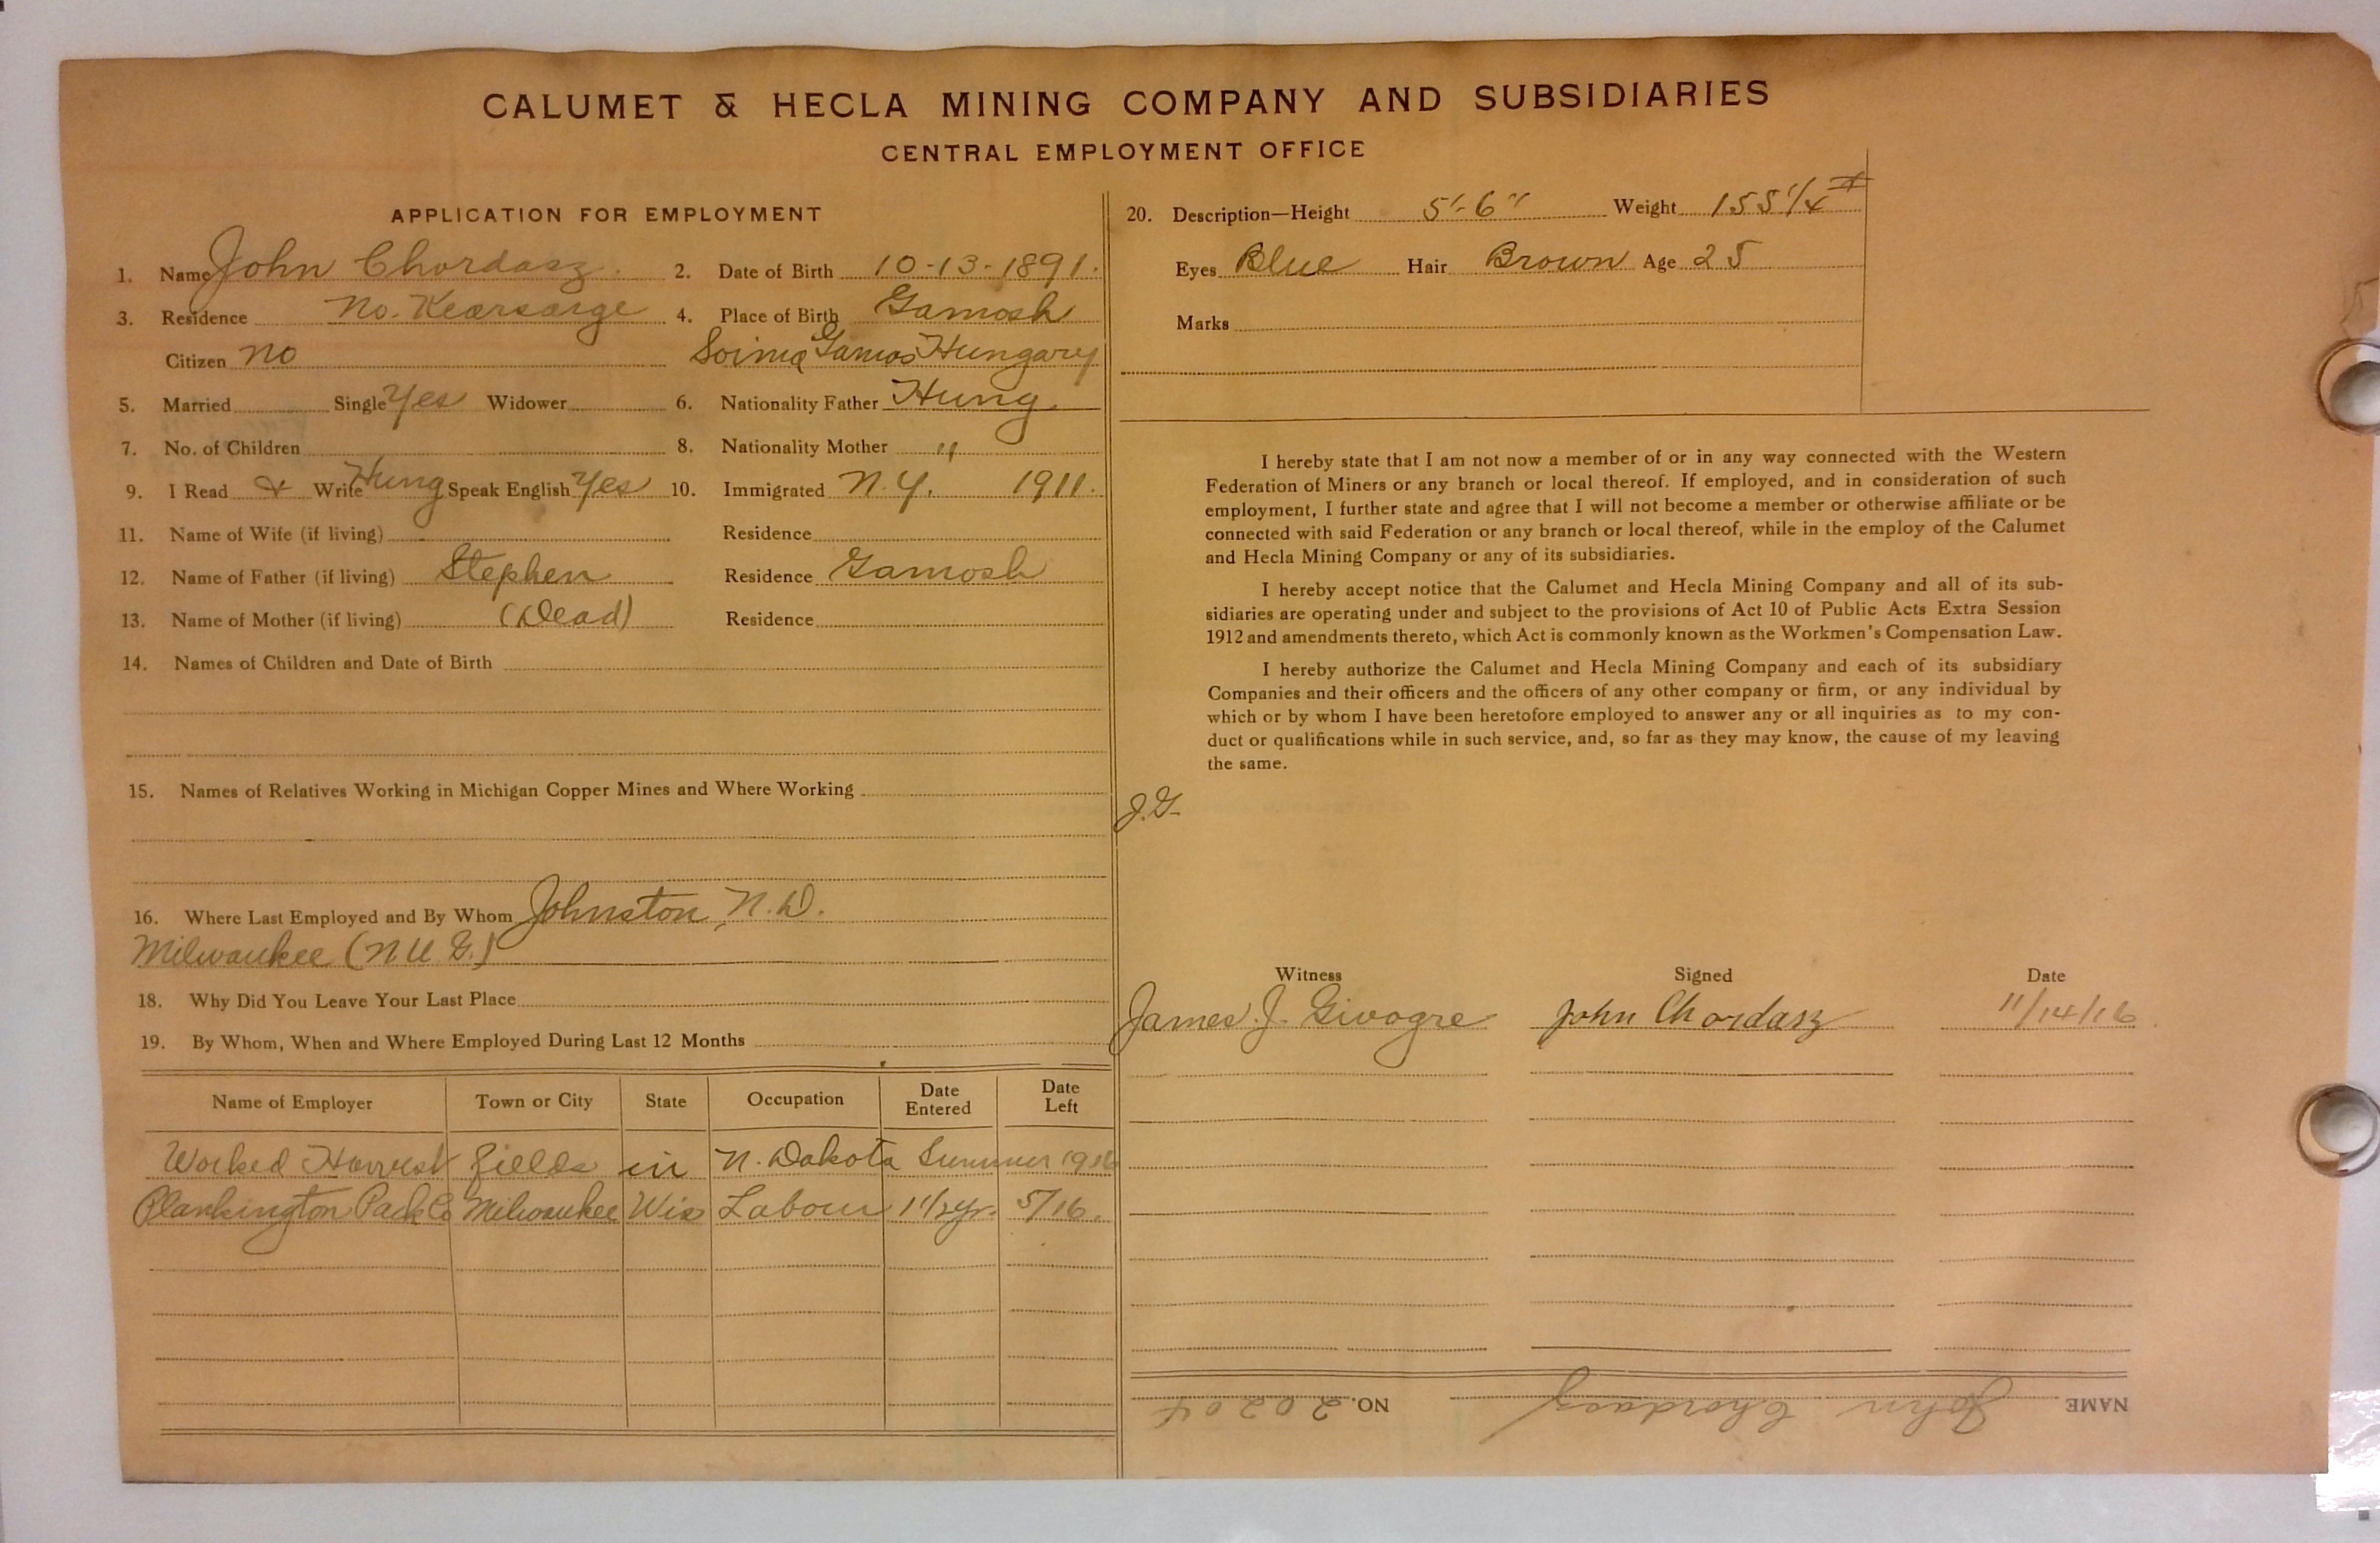 CALUMET & HECLA MINING COMPANY AND SUBSIDIARIES
CENTRAL EMPLOYMENT OFFICE
APPLICATION FOR EMPLOYMENT
1. Name John Chordasz. 2. Date of Birth 10-13-1891.
3. Residence No. Kearsarge 4. Place of Birth Gamosh
Citizen no Soima Gamos Hungary
5. Married Single Yes Widower 6. Nationality Father Hung.
7. No. of Children 8. Nationality Mother "
9. I Read & Write Hung Speak English Yes 10. Immigrated N.Y. 1911.
11. Name of Wife (if living) Residence
12. Name of Father (if living) Stephen Residence Gamosh
13. Name of Mother (if living) (Dead) Residence
14. Names of Children and Date of Birth
15. Names of Relatives Working in Michigan Copper Mines and Where Working
16. Where Last Employed and By Whom Johnston, N.D.
Milwaukee (N U G.)
18. Why Did You Leave Your Last Place
19. By Whom, When and Where Employed During Last 12 Months
Name of Employer Town or City State Occupation Date Entered Date Left
Worked Harvest fields in N. Dakota Summer 1916
Plankington Pack Co Milwaukee Wis Labour 1 1/2 yr. 5/16.
20. Description—Height 5'-6" Weight 155 1/4 #
Eyes Blue Hair Brown Age 25
Marks
I hereby state that I am not now a member of or in any way connected with the Western
Federation of Miners or any branch or local thereof. If employed, and in consideration of such
employment, I further state and agree that I will not become a member or otherwise affiliate or be
connected with said Federation or any branch or local thereof, while in the employ of the Calumet
and Hecla Mining Company or any of its subsidiaries.
I hereby accept notice that the Calumet and Hecla Mining Company and all of its sub-
sidiaries are operating under and subject to the provisions of Act 10 of Public Acts Extra Session
1912 and amendments thereto, which Act is commonly known as the Workmen's Compensation Law.
I hereby authorize the Calumet and Hecla Mining Company and each of its subsidiary
Companies and their officers and the officers of any other company or firm, or any individual by
which or by whom I have been heretofore employed to answer any or all inquiries as to my con-
duct or qualifications while in such service, and, so far as they may know, the cause of my leaving
the same.
J.G.
Witness Signed Date
James J. Givogre John Chordasz 11/14/16
NAME John Chordasz NO. 20204